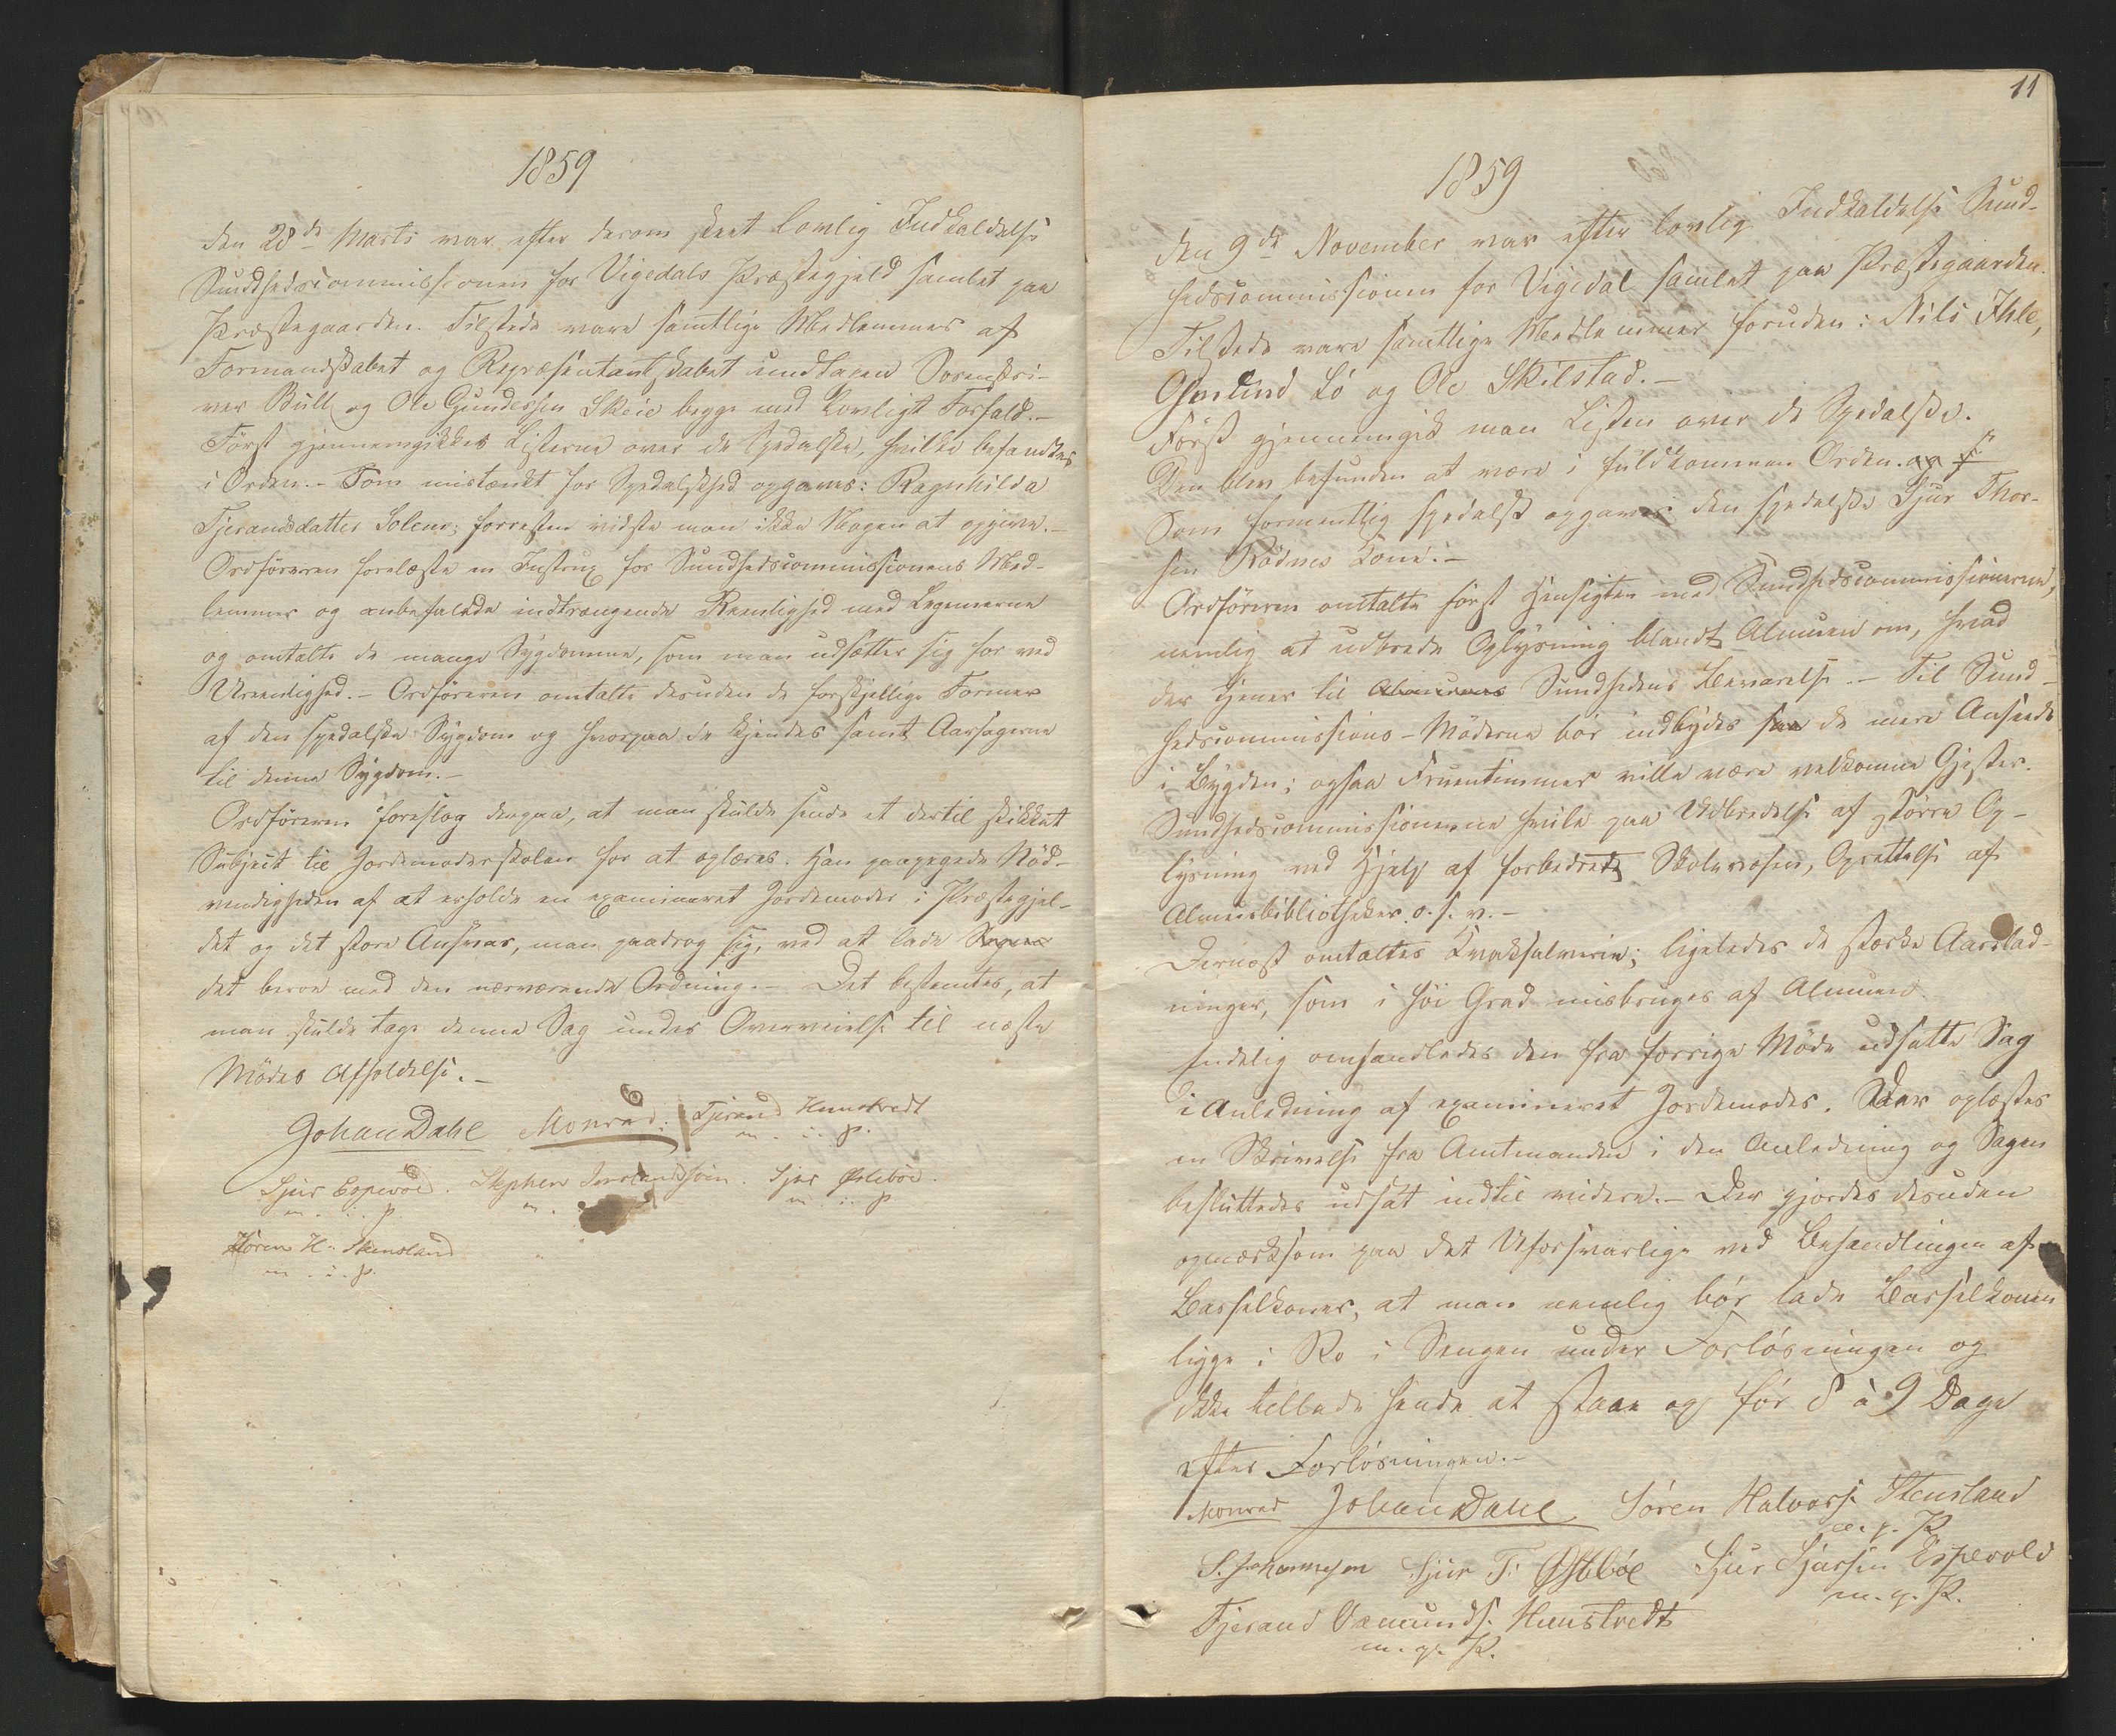 1859
den 28de Marts var efter derom skeet lovlig Indkaldelse
Sundhedscommissionen for Vigedals Præstegjeld samlet paa
Præstegaarden. Tilstede vare samtlige Medlemmer af
Formandskabet og Repræsentantskabet undtagen Sorenskri-
ver Bull og Ole Gundersen Skeie begge med lovligt Forfald.-
Først gjennemgikkes Listerne over de Spedalske, hvilke befandtes
i Orden.- Som mistænkt for Spedalskhed opgaves: Ragnhilda
Tjerandsdatter Solem; forresten vidste man ikke Nogen at opgive.-
Ordføreren forelæste en Instrux for Sundhedscommissionens Med-
lemmer og anbefalede indtrængende Reenlighed med Legemerne
og omtalte de mange Sygdomme, som man udsætter sig for ved
Ureenlighed.- Ordføreren omtalte desuden de forskjellige Former
af den spedalske Sygdom og hvorpaa de kjendes samt Aarsagerne
til denne Sygdom.-
Ordføreren foreslog derpaa, at man skulde sende et dertil skikket
Subject til Jordemoderskolen for at oplæres. Han paapegede Nød-
vendigheden af at erholde en examineret Jordemoder i Præstegjel-
det og det store Ansvar, man paadrog sig, ved at lade Sagen
det beroe med den nærværende Ordning.- Det bestemtes, at
man skulde tage denne Sag under Overveielse til næste
Mødes Afholdelse.-
Johan Dahl Monrad. Tjerand Hunstvedt
m. i. p.
Sjur Espevold. Stephen Svelandsøen. Sjur Østebøe.
m. i. p. m. m. i. p.
Søren H. Stensland
m. i. p.
11
1859
den 9de November var efter lovlig Indkaldelse Sund-
hedscommissionen for Vigedal samlet paa Præstegaarden.
Tilstede vare samtlige Medlemmer foruden: Nils Ihle,
Osmund Lö og Ole Skilstad.-
Först gjennemgik man Listen over de Spedalske.
Den blev befunden at være i fuldkommen Orden. og f
Som formentlig spedalsk opgaves den spedalske Sjur Thor-
sen Rödnes Kone.-
Ordføreren omtalte først Hensigten med Sundhedscommissionerne,
nemlig at udbrede Oplysning blandt Almuen om, hvad
der tjener til Almuens Sundhedens Bevarelse.- Til Sund-
hedscommissions-Møderne bør indbydes saa de mere Anseede
i Bygden; ogsaa Fruentimmer ville være velkomne Gjester.
Sundhedscommissionerne hvile paa Udbredelse af større Op-
lysning ved Hjelp af forbedrede Skolevæsen, Oprettelse af
Almuebibliotheker o. s. v.-
Dernæst omtaltes Kvaksalverie; ligeledes de stærke Aarelad-
ninger, som i høi Grad misbruges af Almuen.
Endelig omhandledes den fra forrige Møde udsatte Sag
i Anledning af examineret Jordemoder. Der oplæstes
en Skrivelse fra Amtmanden i den Anledning og Sagen
besluttedes udsat indtil videre.- Der gjordes desuden
opmærksom paa det Uforsvarlige ved Behandlingen af
Barselkoner, at man nemlig bør lade Barselkonen
ligge i Ro i Sengen under Forløsningen og
ikke tillade hende at staae op før 8 à 9 Dage
efter Forløsningen.-
Monrad Johan Dahl Sören Halvors. Stensland
m. p. P.
S. Johannesen Sjur T. Østebøe Sjur Sjursen Espevold
m. p. P.
Tjerand Aamunds. Hunstvedt
m. p. P.